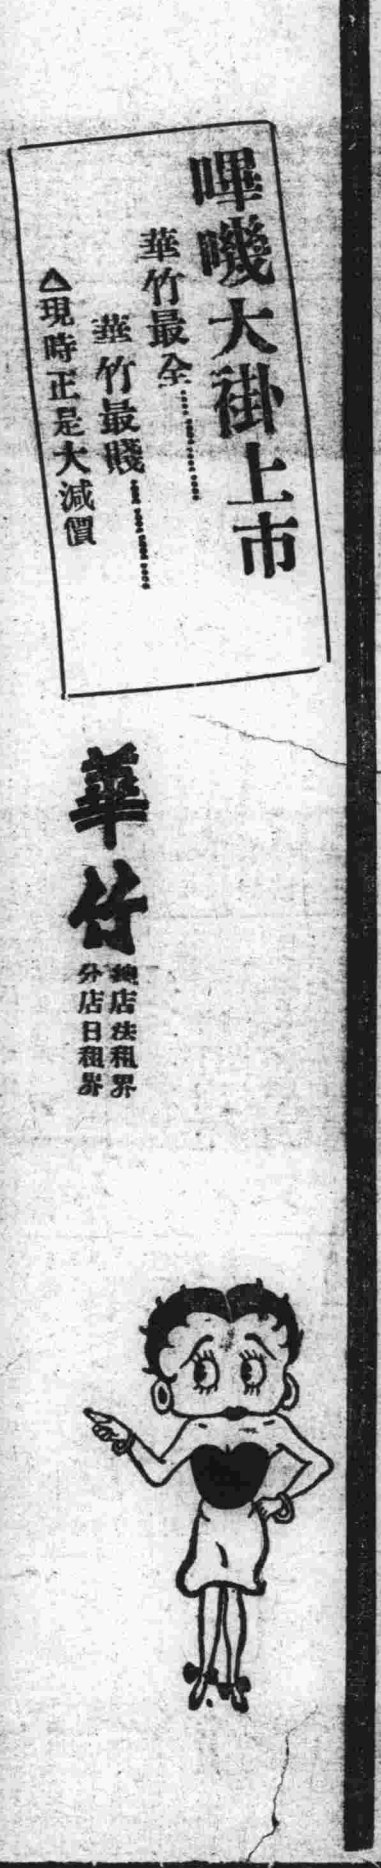 嗶嘰大褂上市
華竹最全…………
華竹最賤…………
△現時正是大減價
華竹
總店法租界
分店日租界